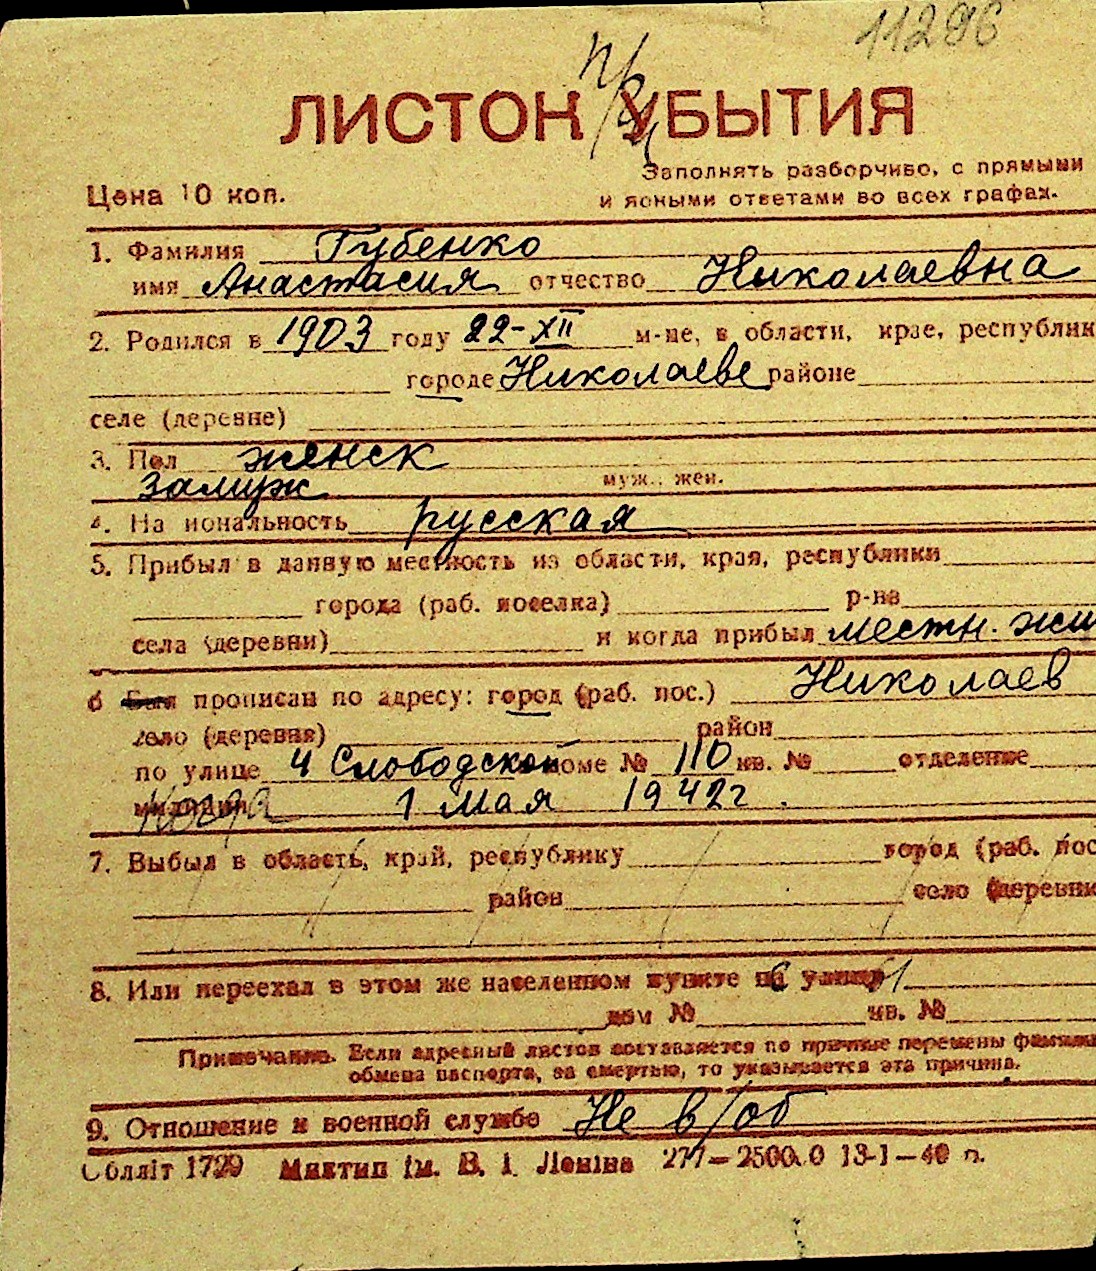 11296
ЛИСТОК УБЫТИЯ
Заполнять разборчиво, с прямыми
Цена 10 коп. и ясными ответами во всех графах.
1. Фамилия Губенко
имя Анастасия отчество Николаевна
2. Родился в 1903 году 22-XII м-це, в области, крае, республик
городе Николаеве районе
селе (деревне)
3. Пол женск
замуж муж., жен.
4. На иональность русская
5. Прибыл в данную местность из области, края, республики
города (раб. поселка) р-на
села (деревни) и когда прибыл местн. жи
6 Был прописан по адресу: город (раб. пос.) Николаев
село (деревня) район
по улице 4 Слободской доме № 110 кв. № отделение
милиции Когда 1 Мая 1942 г.
7. Выбыл в область, край, республику город (раб. пос
район село (деревни
8. Или переехал в этом же населенном пункте на улицу
дом № кв. №
Примечание. Если адресный листок составляется по причине перемены фамили
обмена паспорта, за смертью, то указывается эта причина.
9. Отношение к военной службе Не в/об
Обллiт 1729 Миктип iм. В. I. Ленiна 277—2500.0 13-1—40 п.